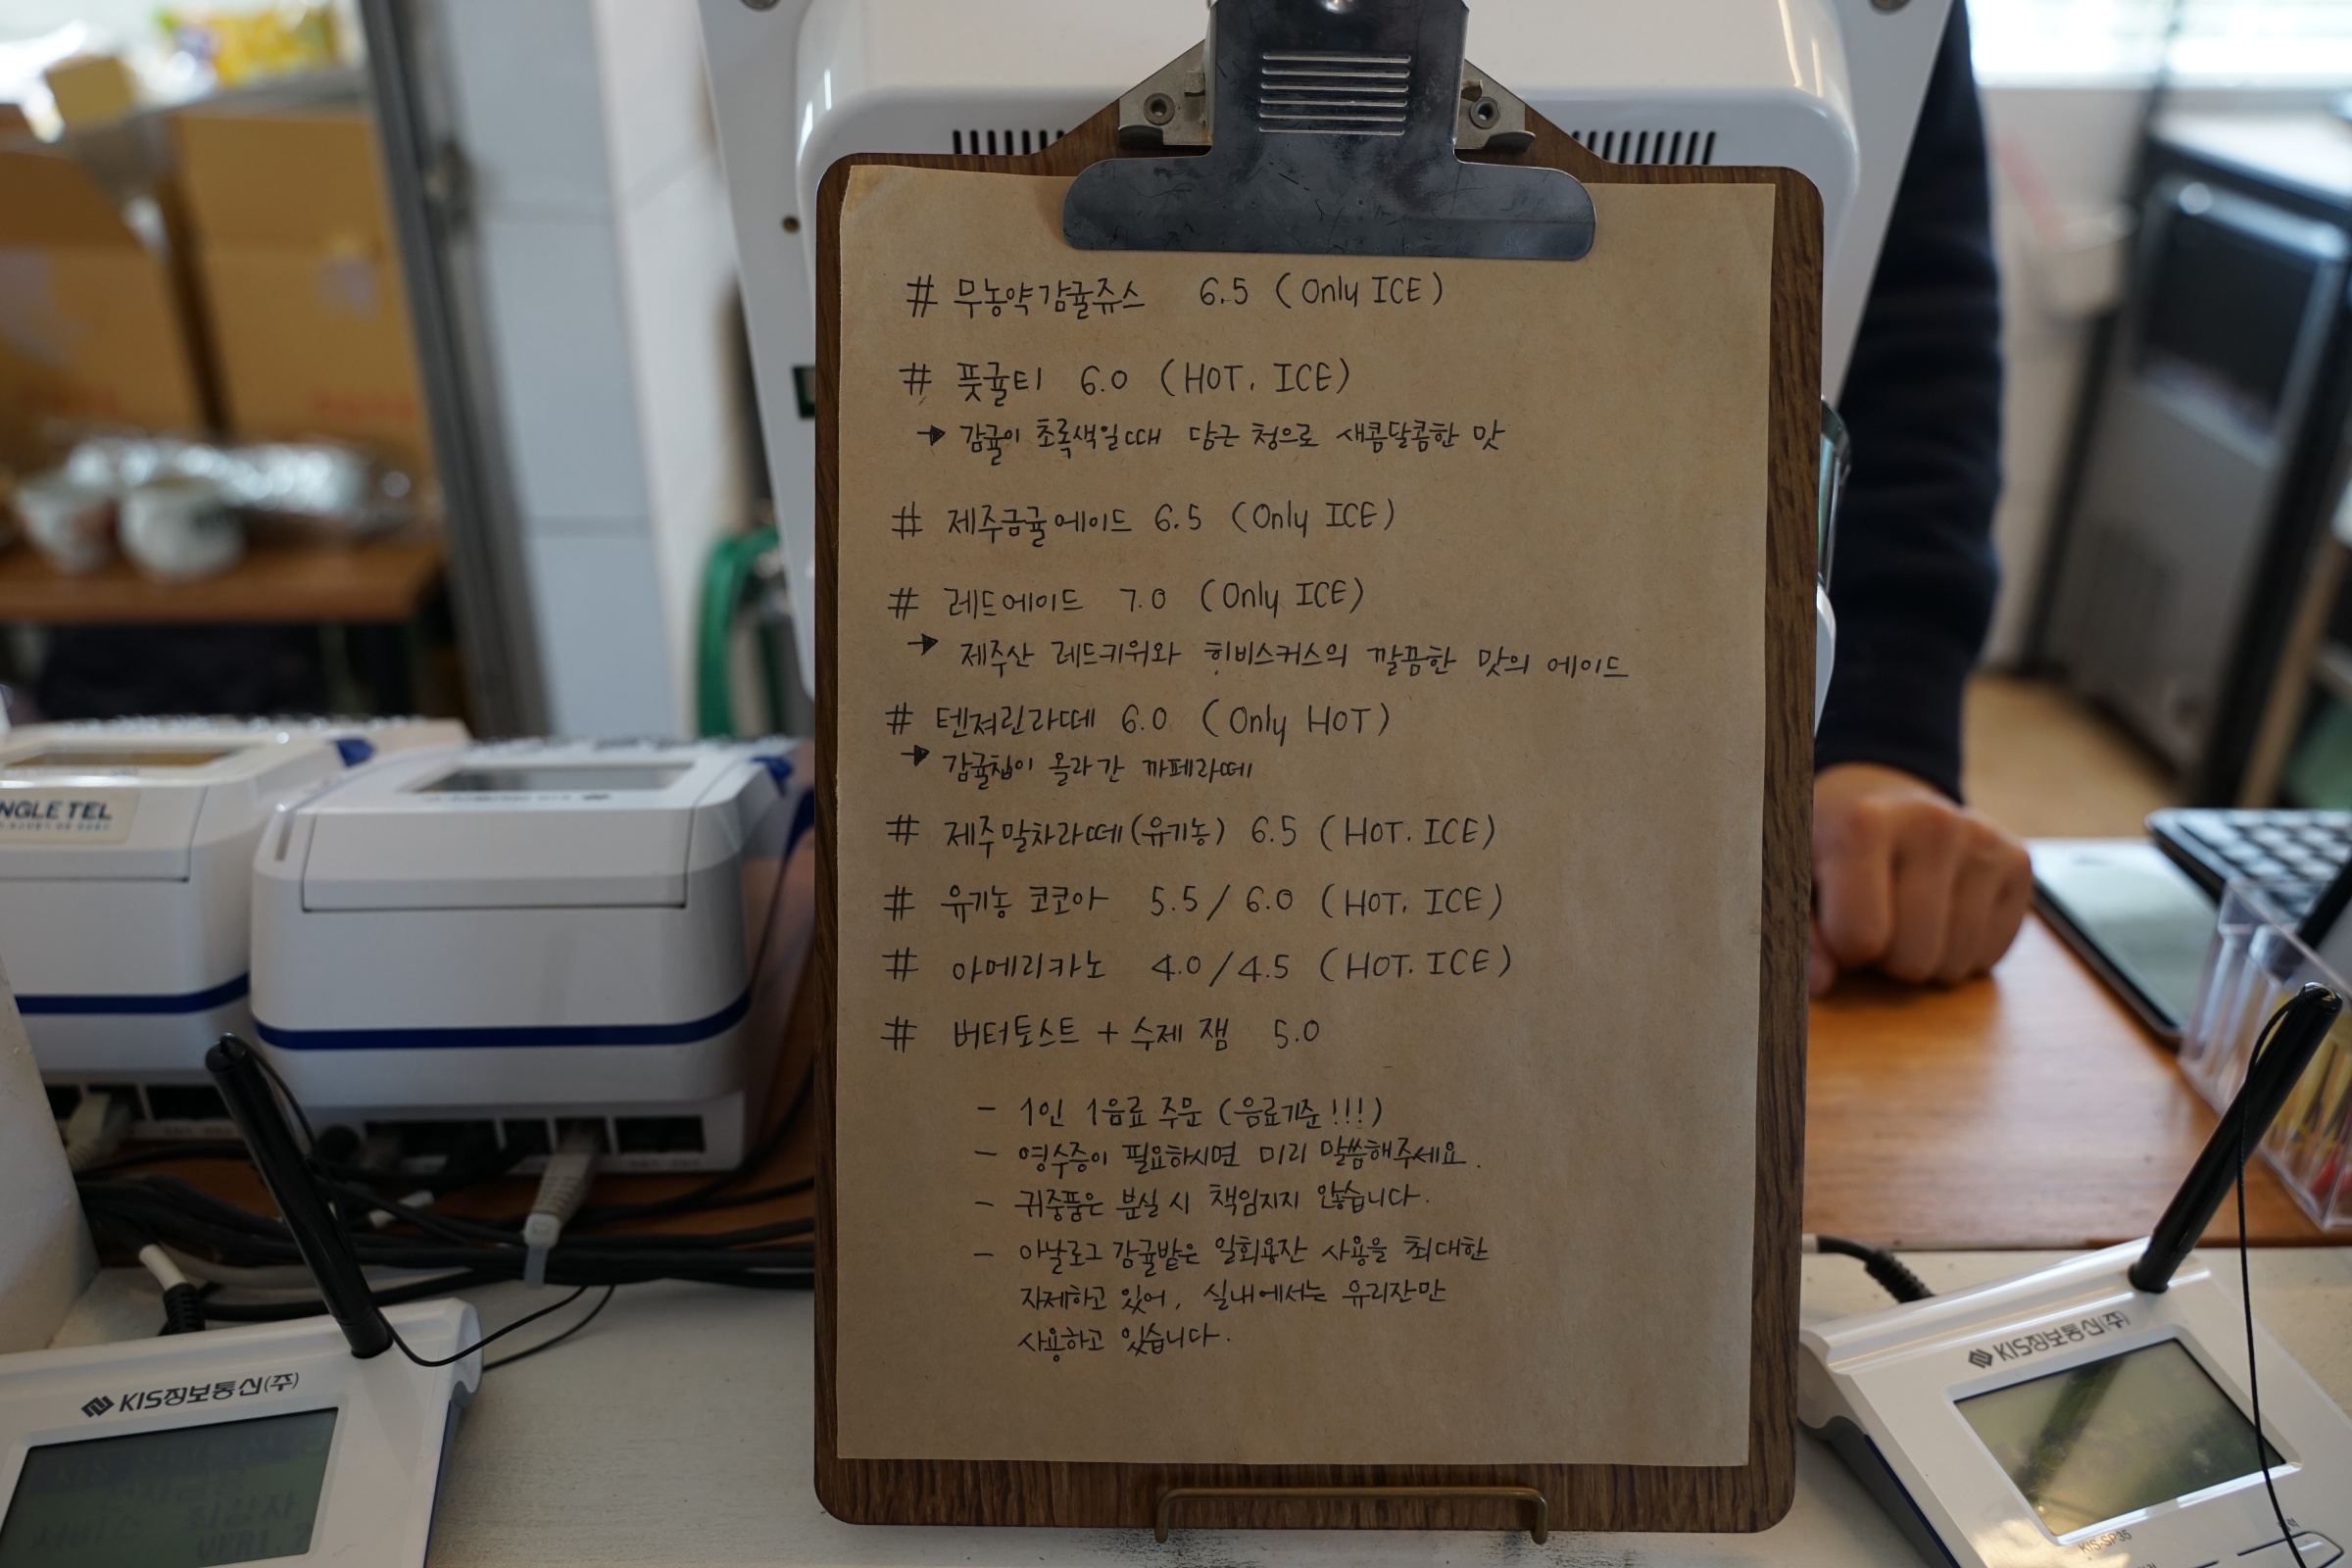 # 무농약감귤쥬스 6.5 (Only ICE)
# 풋귤티 6.0 (HOT, ICE)
→ 감귤이 초록색일때 담근 청으로 새콤달콤한 맛
# 제주금귤에이드 6.5 (Only ICE)
# 레드에이드 7.0 (Only ICE)
→ 제주산 레드키위와 히비스커스의 깔끔한 맛의 에이드
# 텐져린라떼 6.0 (Only HOT)
→ 감귤칩이 올라간 까페라떼
# 제주말차라떼(유기농) 6.5 (HOT. ICE)
# 유기농 코코아 5.5/6.0 (HOT. ICE)
# 아메리카노 4.0/4.5 (HOT. ICE)
# 버터토스트 + 수제 잼 5.0
- 1인 1음료 주문 (음료기준!!!)
- 영수증이 필요하시면 미리 말씀해주세요.
- 귀중품은 분실 시 책임지지 않습니다.
- 아날로그 감귤밭은 일회용잔 사용을 최대한
자제하고 있어, 실내에서는 유리잔만
사용하고 있습니다.
NGLE TEL
KIS정보통신(주)
KIS정보통신(주)
KIS-SP35